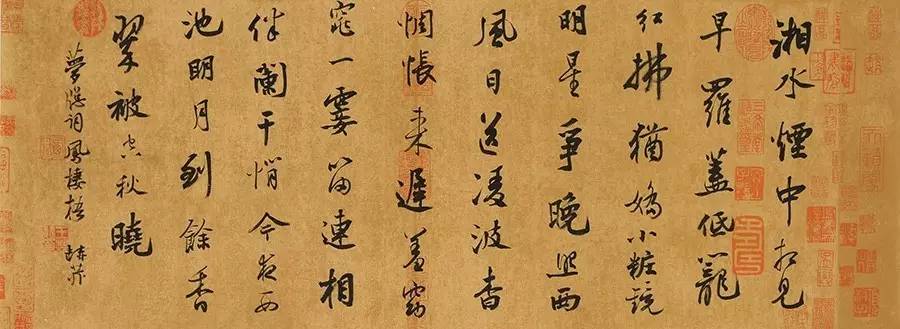 湘水煙中相見
早羅蓋低籠
紅拂猶嬌小粧鏡
明星爭晚照西
風日送凌波杳
惆悵来遲羞窈
窕一霎留連相
伴闌干悄今夜西
池明月到餘香
翠被空秋曉
夢窗詞鳳棲梧